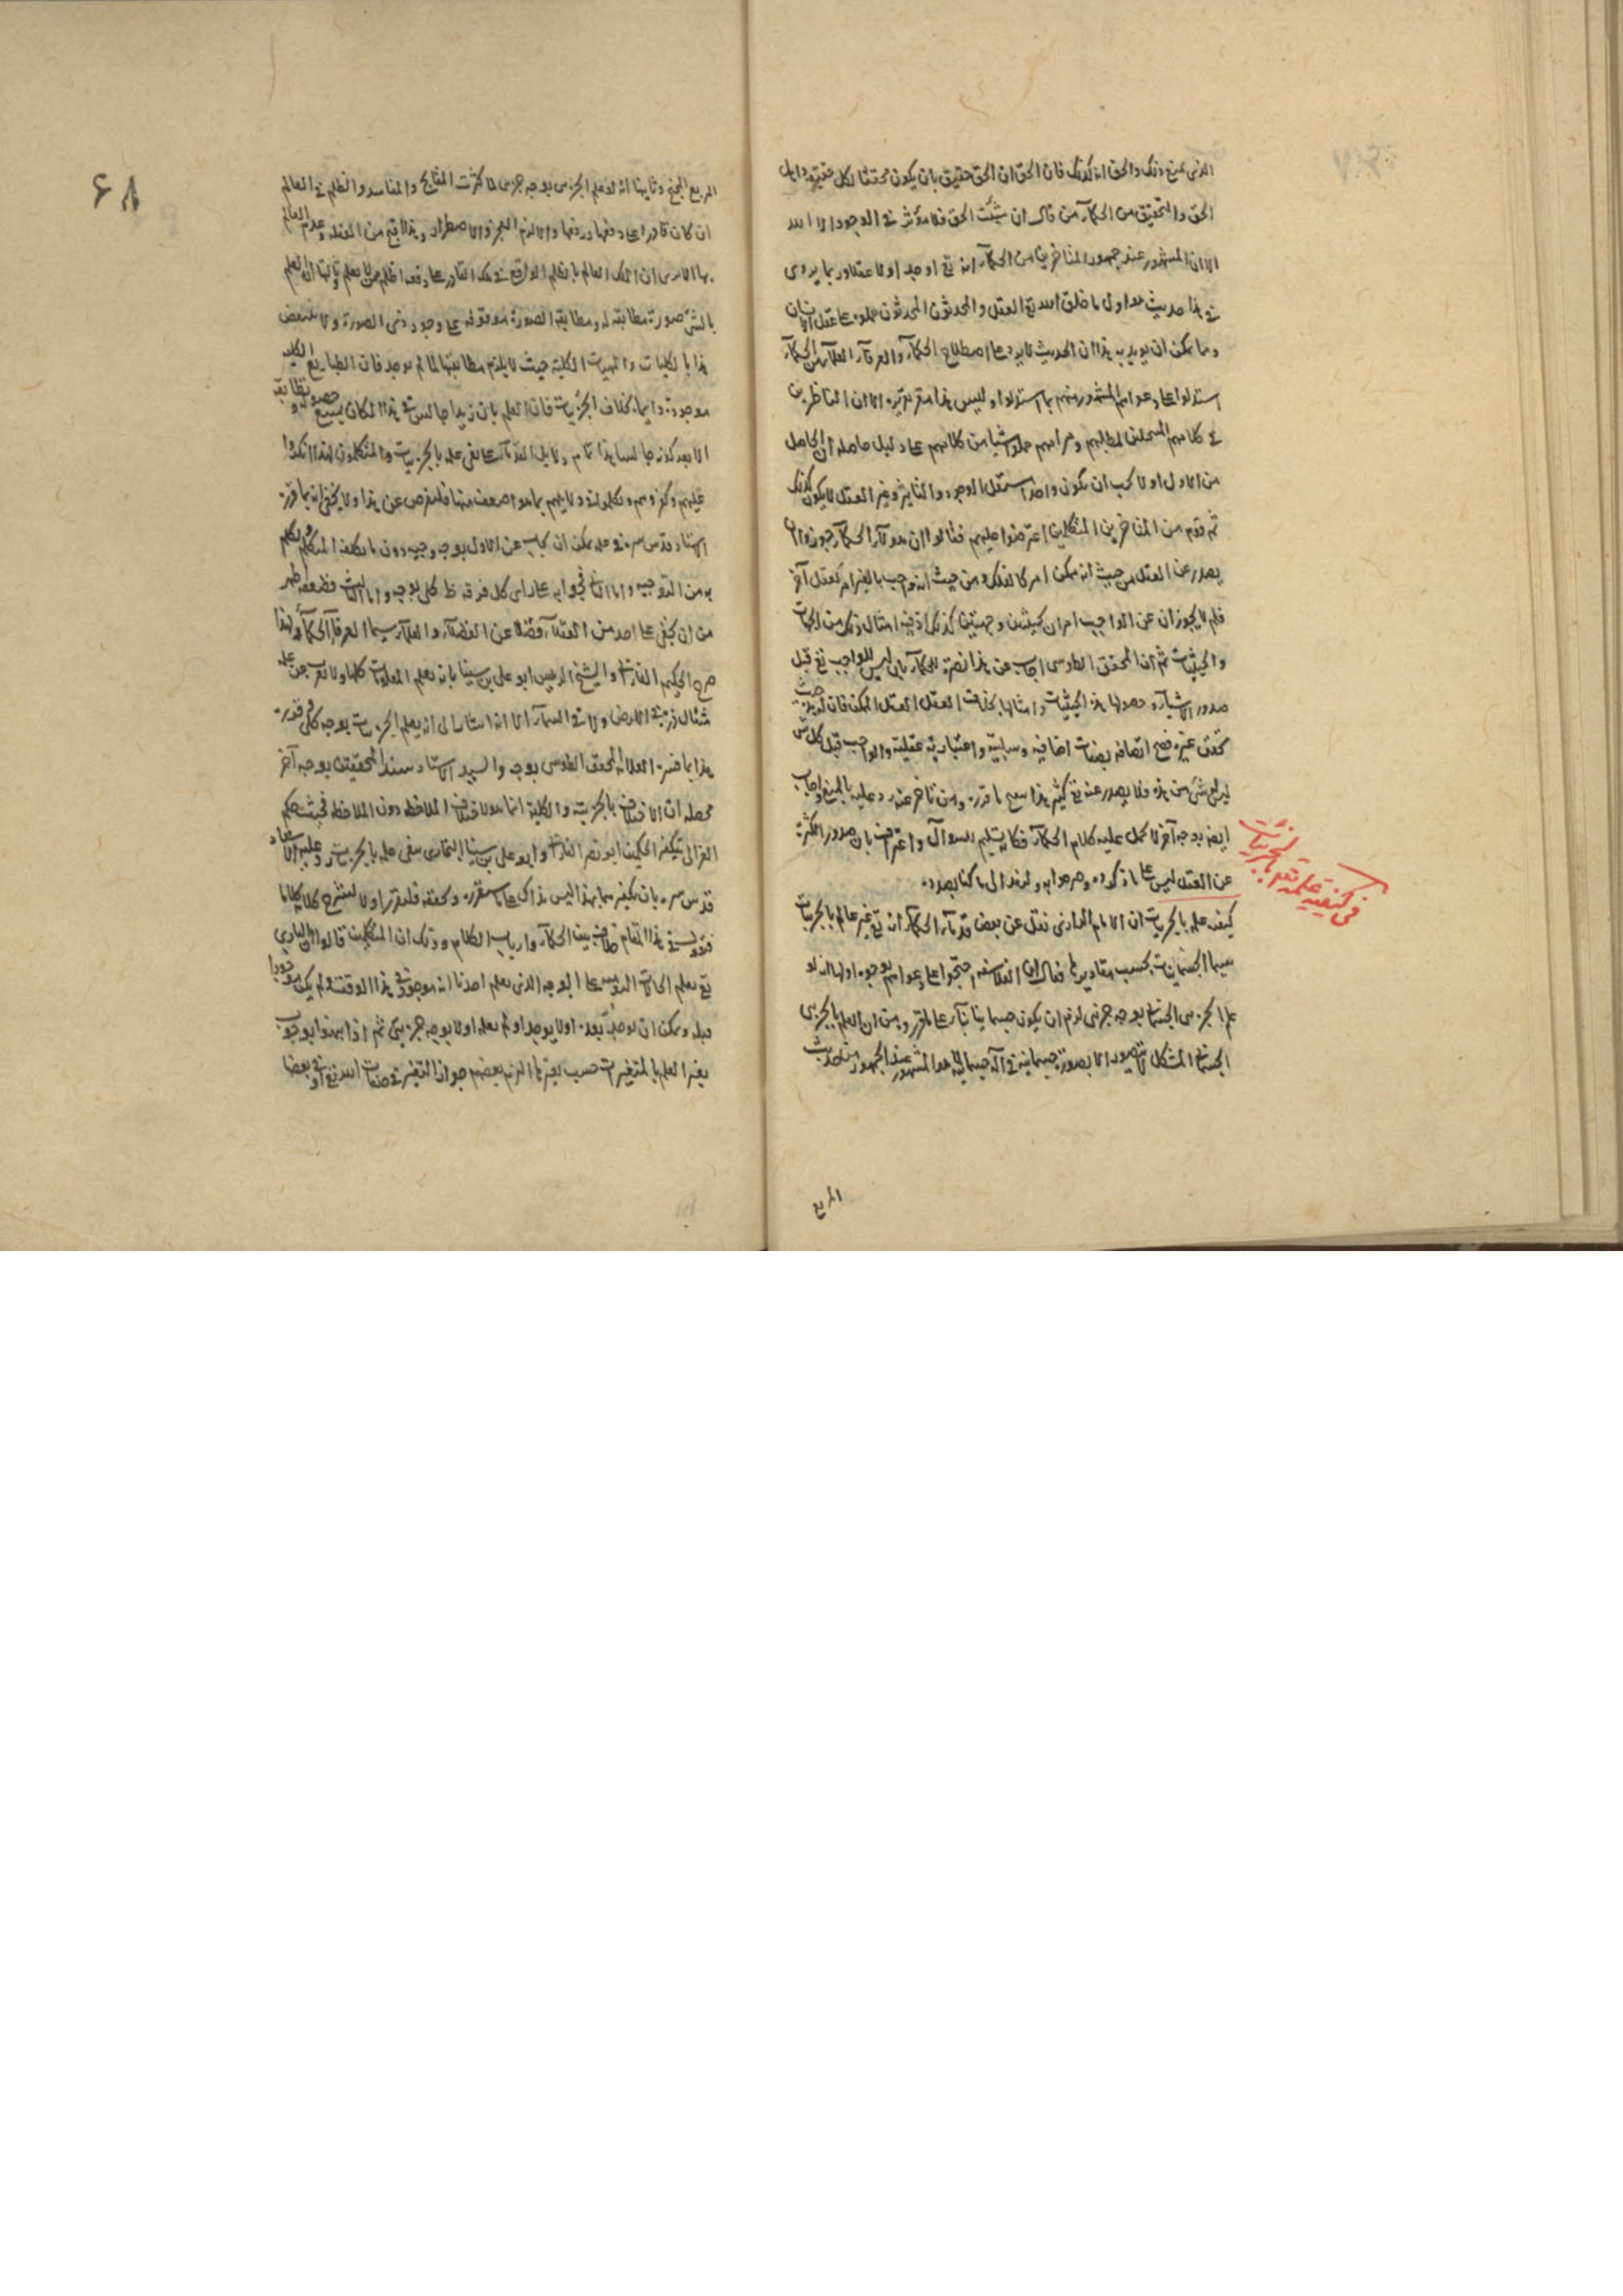 الذي يمنع ذلك والحق انه كذلك فان الحق ان الحق حقيق بان يكون محققا لكل حقيقة واهل
الحق والتحقيق من الحكمآء من قال ان شئت الحق فلا مؤثر في الوجود الا الله
الا ان المشهور عند جمهور المتاخرين من الحكمآء انه تع اوجد اولا عقلا وربما يروى
في هذا حديث هو اول ما خلق الله تع العقل والمحدثون حملوه على عقل الانسان
ومما يمكن ان يؤيد به هذا ان الحديث لا يرد على اصطلاح الحكمآء والعرفآء العلمآء من الحكمآء
استدلوا على دعواهم المشهورة منهم بما استدلوا وليس هذا مقر تقريره الا ان الناظرين
في كلامهم لمطالبهم ومرامهم حملوا شيئا من كلامهم على دليل حاصله ان الحاصل
من الاول اولا يجب ان يكون واحدا مستقل الوجود والتاثير وغير العقل لا يكون كذلك
ثم قوم من المتاخرين المتكلمين اعترضوا عليهم فقالوا ان هؤلاء الحكمآء جوزوا ان
يصدر عن العقل من حيث انه ممكن امر كالفلك ومن حيث انه واجب بالغير امر كعقل آخر
فلم لا يجوز ان عن الواجب امران بحيثيتين وجهتين كذلك اذ فيه امثال ذلك من الجهات
والحيثيات ثم ان المحقق الطوسي اجاب عن هذا نصرة للحكمآء بان ليس للواجب تع قبل
صدور الاشيآء وحصولها هذه الحيثيات وامثالها بخلاف العقل الممكن فان له
تحقق غيره فصح اتصافه بصفات اضافية وسلبية واعتبارية عقلية والواجب قبل كل شي
ليس له شئ من هذه فلا يصدر عنه تع كثير هذا ما قرره ومن تاخر عنه رد عليه بالمنع واجاب
ايضا بوجه آخر لا يحمل عليه كلام الحكمآء فكانه تسليم للسؤال واعتراف بان صدور الكثرة
عن العقل ليس على ما ذكروه ولنرجع الى ما كنا بصدده
كيفية علمه بالجزئيات ان الامام الرازي نقل عن بعض قدمآء الحكمآء انه تع غير عالم بالجزئيات
سيما الجسمانيات بحسب مقاديرها فقال ان الفلاسفة احتجوا على دعواهم بوجوه اولها انه لو
علم الجزئي الجسماني بوجه جزئي لزم ان يكون جسمانيا بنآء على ما قرر من ان العلم بالجزئي
الجسماني المتشكل لا يتصور الا بصورة جسمانية في آلة جسمانية هو المشهور عند الجمهور من حديث
المربع
في كيفية علمه تعالى بالجزئيات
٤٨
المربع المجنح وثانيها انه لو علم الجزئي بوجه جزئي لما كثرت القبايح والمفاسد والظلم في العالم
ان كان قادرا على دفعها دفعها والا لزم العجز والاضطرار وهذا اقبح من الجهل وعدم العلم
بها الا ترى ان الملك العالم بالظلم الواقع في ملكه القادر على دفعه اظلم ممن لا يعلم وثالثها ان العلم
بالشئ صورة مطابقة له ومطابقة الصورة موقوفة على وجود ذي الصورة ولا ينتقض
هذا بالكليات والمهيات الكلية حيث لا يلزم مطابقتها لما لم يوجد فان الطبايع الكلية
موجودة دايما بخلاف الجزئيات فان العلم بان زيدا جالس في هذا المكان يمتنع حصوله وتطابقه
الا بعد كونه جالسا هذا تمام دلايل القدمآء على نفي علمه بالجزئيات والمتكلمون لهذا انكروا
عليهم وكفروهم وتكلموا في دلايلهم بما هو اضعف منها فلنعرض عن هذا ولا يخفى انه بما قرره
الاستاد قدس سره في علمه يمكن ان يجاب عن الاول بوجه وجيه دون ما تكلفه المتكلم وتكلم
به من التوجيه واما الثاني فجوابه على راي كل فرقة ظ كل بوجه واما الثالث فضعفه اظهر
من ان يخفى على احد من العقلآء فضلا عن الفضلآء والعلمآء سيما العرفآء الحكمآء ولهذا
صرح الحكيم الفارابي والشيخ الرئيس ابو علي بن سينا بانه يعلم المعلومات كلها ولا يعزب عن علمه
مثقال ذرة في الارض ولا في السمآء الا انه اشارا الى انه يعلم الجزئيات بوجه كلي
هذا بما فسره العلامة المحقق الطوسي بوجه والسيد الاستاد سند المحققين بوجه آخر
محصله ان الاختلاف بالجزئية والكلية انما هو لاختلاف الملاحظة دون الملاحظ فحيث حكم
الغزالي بتكفير الحكيمين ابو نصر الفارابي وابو علي بن سينا البخاري بنفي علمه بالجزئيات رد عليه الاستاد
قدس سره بان تكفيرهما بهذا ليس بذاك على ما سنقرره ونحققه فلنقرر اولا لنشرح كلامه كلاما
فنقول في هذا المقام خلاف بين الحكمآء وارباب الكلام وذلك ان المتكلمين قالوا ان الباري
تع يعلم الحادث اليومي على الوجه الذي يعلم احدنا انه موجود في هذا الوقت ولم يكن موجودا
قبله ويمكن ان يوجد بعده اولا يوجد او لم يعلمه اولا بوجه جزئي ثم اذا تنبهوا بوجوب
تغير العلم بالمتغيرات حسب تغيرها التزم بعضهم جواز التغير في صفات الله تع وبعضا